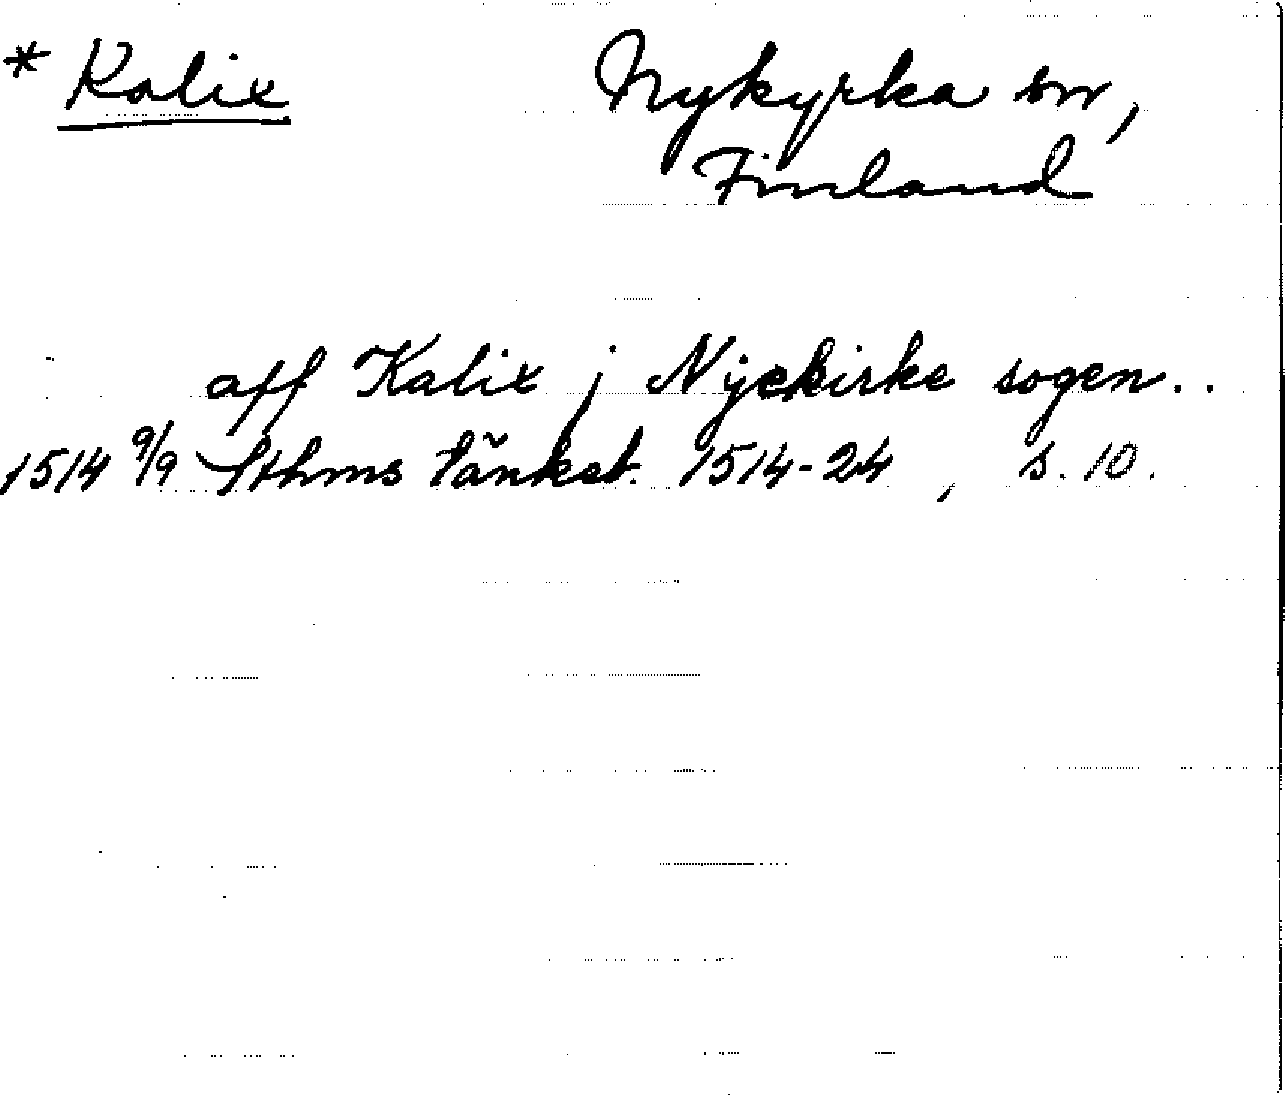 * Kalix Nykyrka sn,
Finland
aff Kalix j Nyckirke sogen..
1514 9/9 Sthms tänkeb. 1514-24, s. 10.